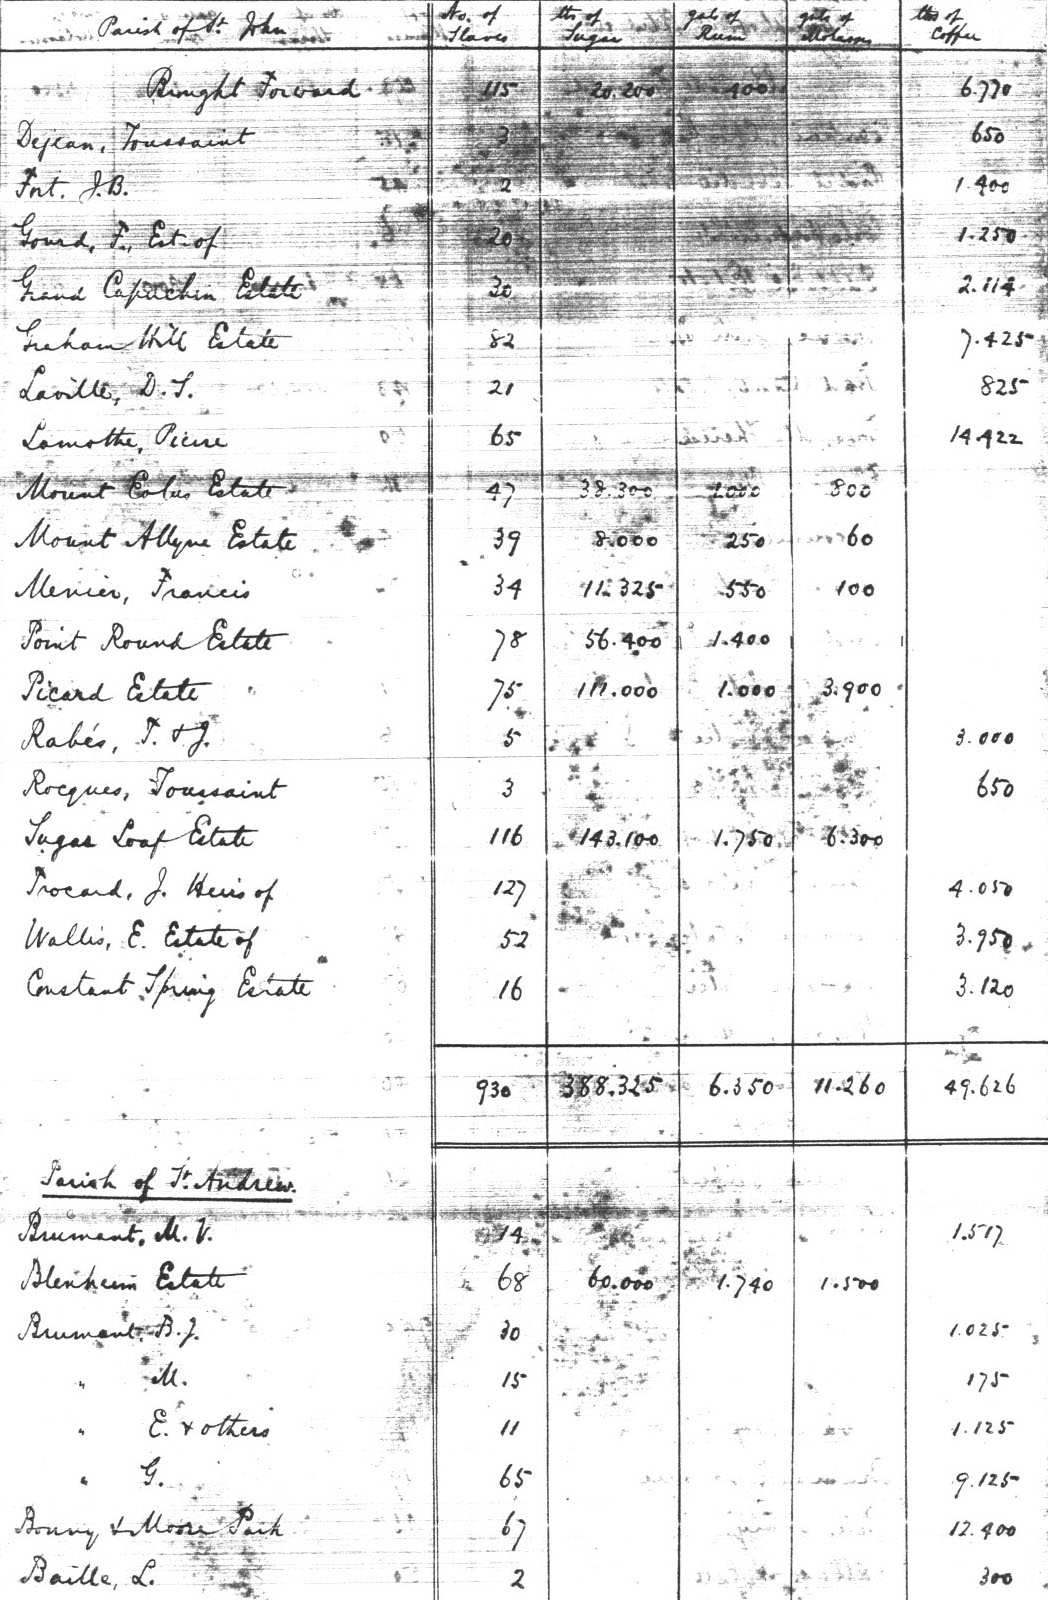 Parish of St. John No. of Slaves lbs of Sugar gals of Rum gals of Molasses lbs of Coffee
Brought Forward 115 20.200 400 6.770
Dejean, Toussaint 3 650
Fort. J.B. 2 1.400
Gourd, F., Est. of 20 1.250
Grand Capuchin Estate 30 2.114
Graham Hill Estate 82 7.425
Laville, D.S. 21 825
Lamothe, Pierre 65 14.422
Mount Eolus Estate 47 38.300 1000 800
Mount Allyne Estate 39 8.000 250 60
Menier, Francis 34 11.325 550 100
Point Round Estate 78 56.400 1.400
Picard Estate 75 111.000 1.000 3.900
Rabés, T. & J. 5 3.000
Rocques, Toussaint 3 650
Sugar Loaf Estate 116 143.100 1.750 6.300
Trocard, J. Heirs of 127 4.050
Wallis, E. Estate of 52 3.950
Constant Spring Estate 16 3.120
930 388.325 6.350 11.260 49.626
Parish of St. Andrew.
Brumant, M. V. 14 1.517
Blenheim Estate 68 60.000 1.740 1.500
Brumant, B.J. 30 1.025
" M. 15 175
" E. & others 11 1.125
" G. 65 9.125
Bonny & Moore Park 67 12.400
Baille, L. 2 300